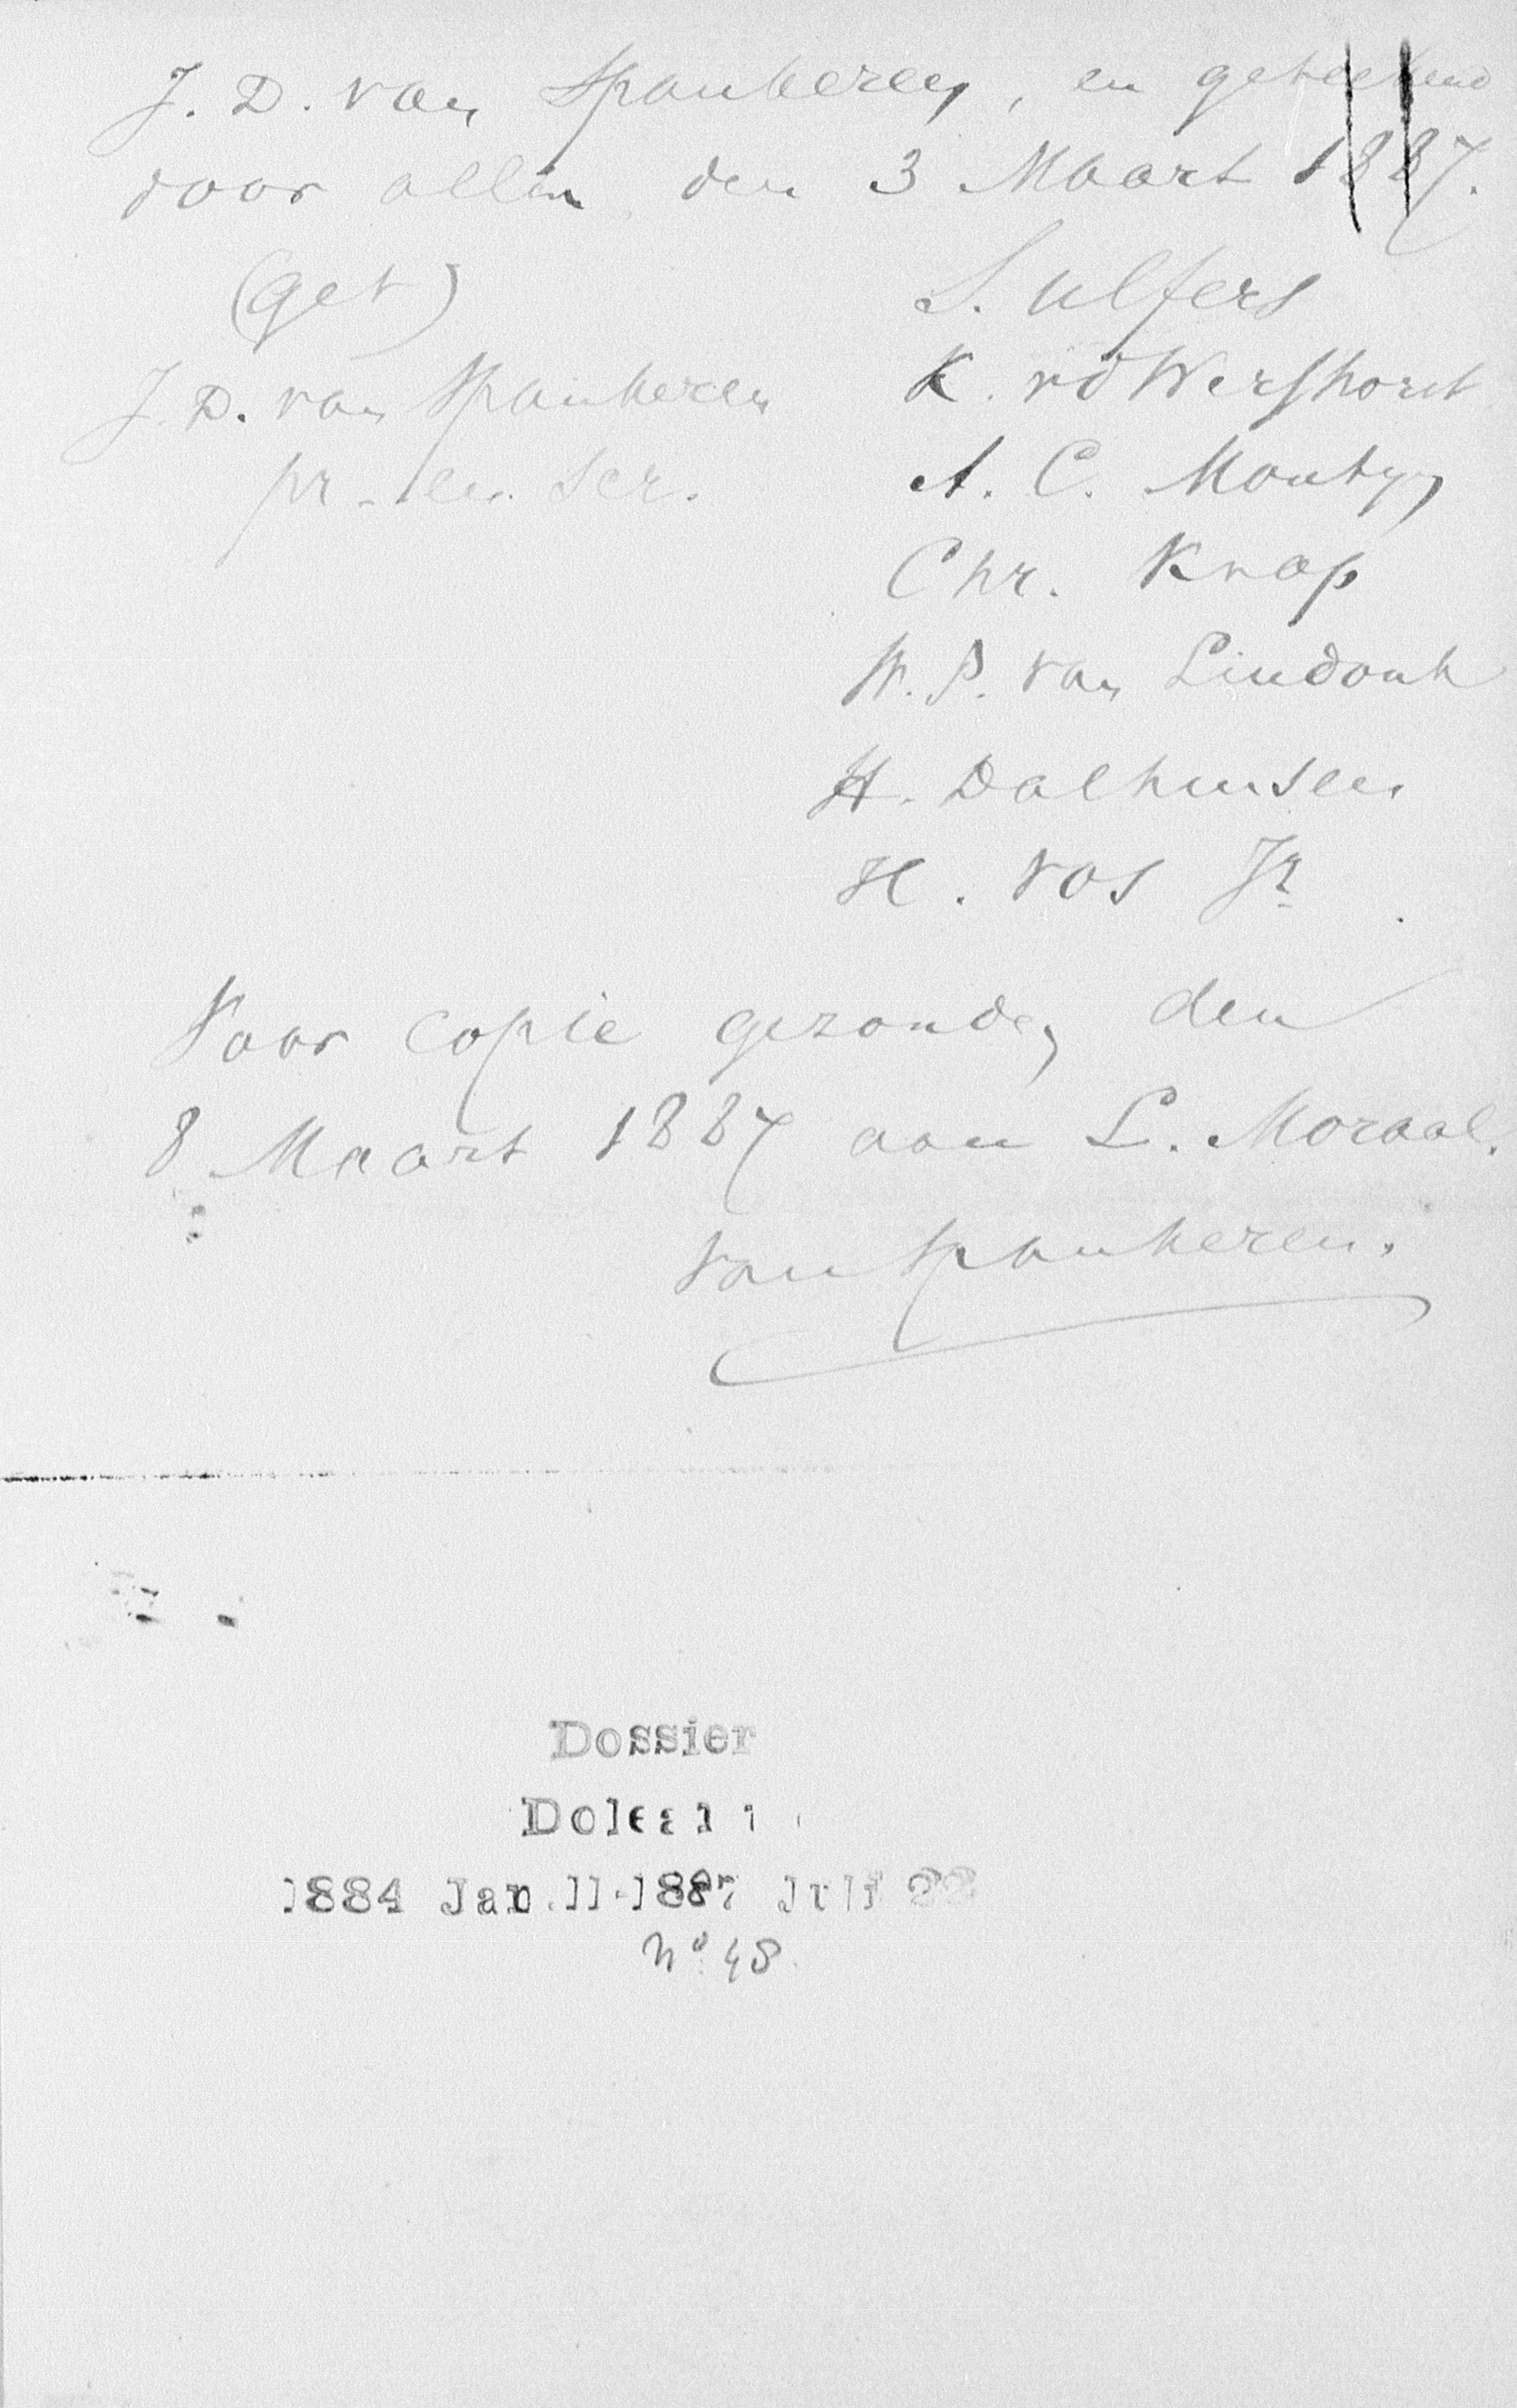 J. D. van Spankeren, en geteekend
door allen den 3 Maart 1887.
(get)
J. D. van Spankeren
pr. en scr.
S. Ulfers
K. vd Wershorst
A. C. Montijn
Chr. Knap
W. P. van Lindonk
H. Dalhuisen
H. Vos Jr
Voor copie gezonden den
8 Maart 1887 aan L. Moraal.
van Spankeren.
Dossier
1884 Jan.11-1887 Juli 22
No 48